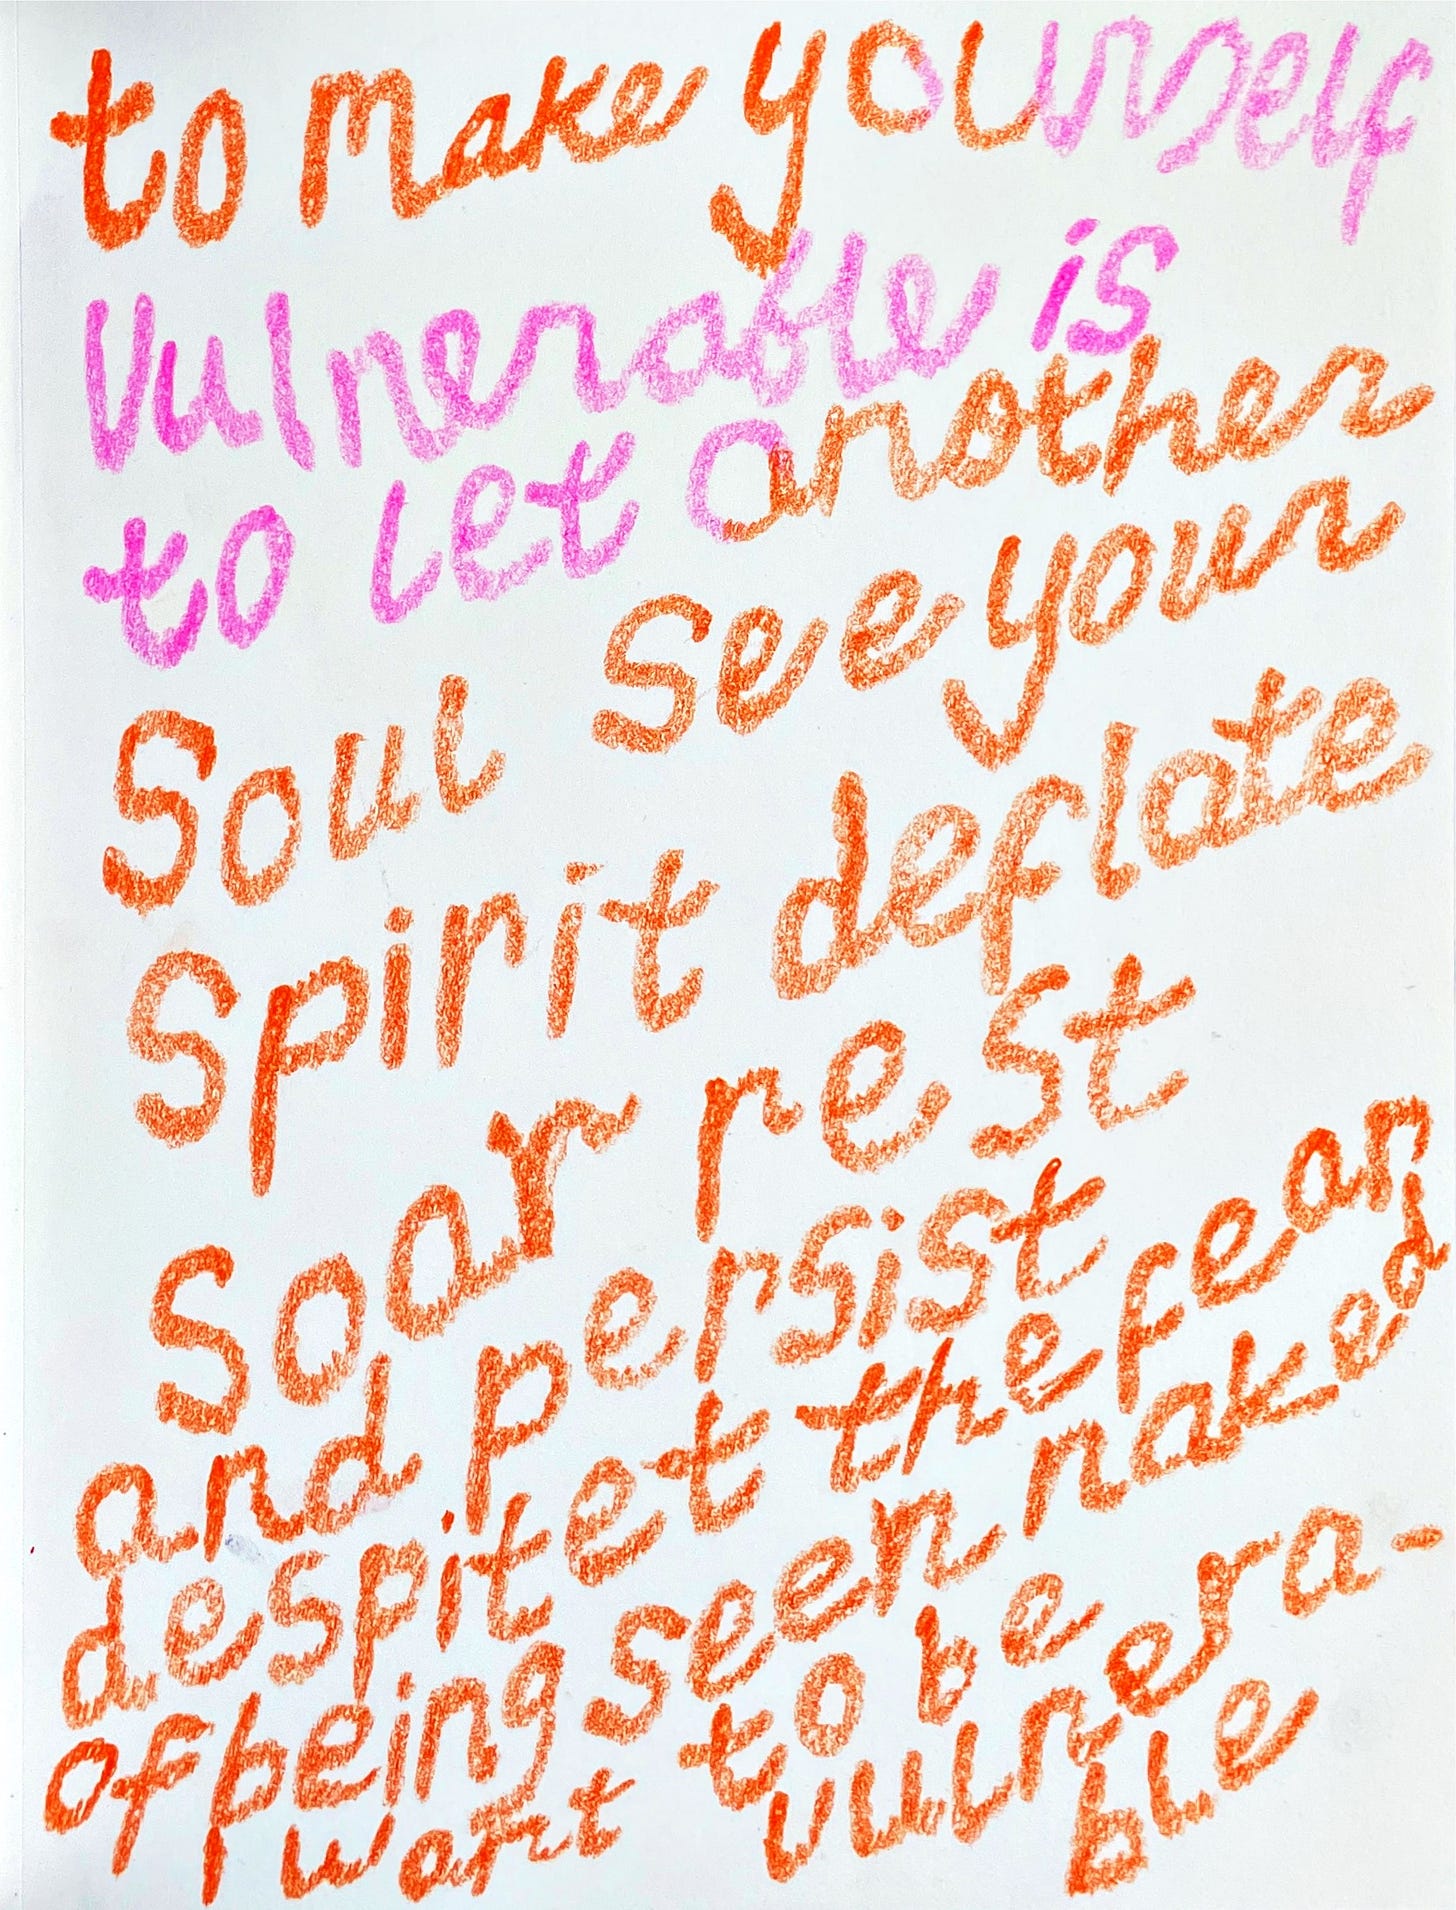 to make yourself
vulnerable is
to let another
see your
soul
spirit deflate
soar rest
and persist
despite the fear
of being seen naked
I want to be
vulnera-
ble